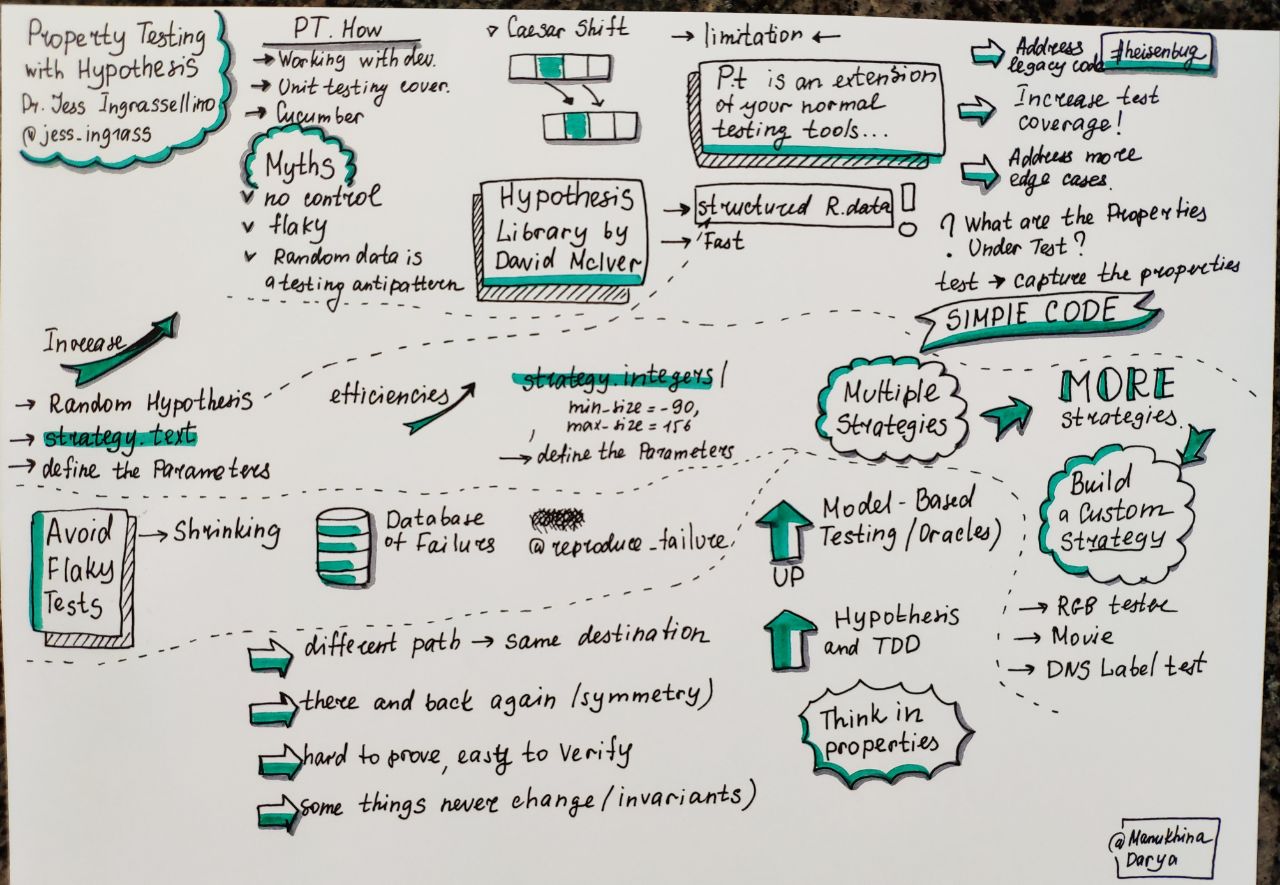 Property Testing
with Hypothesis
Dr. Jess Ingrassellino
@jess_ingrass
PT. How
→ Working with dev.
→ Unit testing cover.
→ Cucumber
Myths
✓ no control
✓ flaky
✓ Random data is
a testing antipattern
▽ Caesar Shift
Hypothesis
Library by
David McIver
→ limitation ←
P.t is an extension
of your normal
testing tools...
→ structured R.data !
→ Fast
Address
legacy code
#heisenbug
Increase test
coverage!
Address more
edge cases.
? What are the Properties
Under Test?
test → capture the properties
SIMPLE CODE
Increase
→ Random Hypothesis
→ strategy.text
→ define the Parameters
efficiencies
strategy.integers/
min-size = -90,
, max-size = 156
→ define the Parameters
Multiple
Strategies
MORE
strategies.
Build
a Custom
Strategy
→ RGB tester
→ Movie
→ DNS Label test
Avoid
Flaky
Tests
→ Shrinking
Database
of Failures
@reproduce_failure
UP
Model-Based
Testing (Oracles)
Hypothesis
and TDD
Think in
properties
different path → same destination
there and back again (symmetry)
hard to prove, easy to Verify
some things never change (invariants)
@Manukhina
Darya